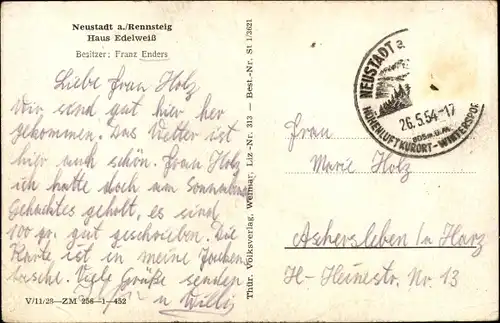 Neustadt a./Rennsteig
Haus Edelweiß
Besitzer: Franz Enders
Liebe Frau Holz
Wir send gut hier her
gekommen. Das Wetter ist
hier auch schön. Frau Holz
ich hatte doch am Sonnabend
Gehacktes geholt, es sind
100 gr. gut geschrieben. Die
Karte ist in meine Jacken
tasche. Viele Grüße senden
u Willi
V/11/28—ZM 256—1—452
Thür. Volksverlag, Weimar, Liz.-Nr. 313 — Best.-Nr. St 1/3621
NEUSTADT a.
26.5.54-17
805m ü.M.
HÖHENLUFTKURORT-WINTERSPOR
Frau
Marie Holz
Aschersleben /n Harz
H-Heinestr. Nr. 13